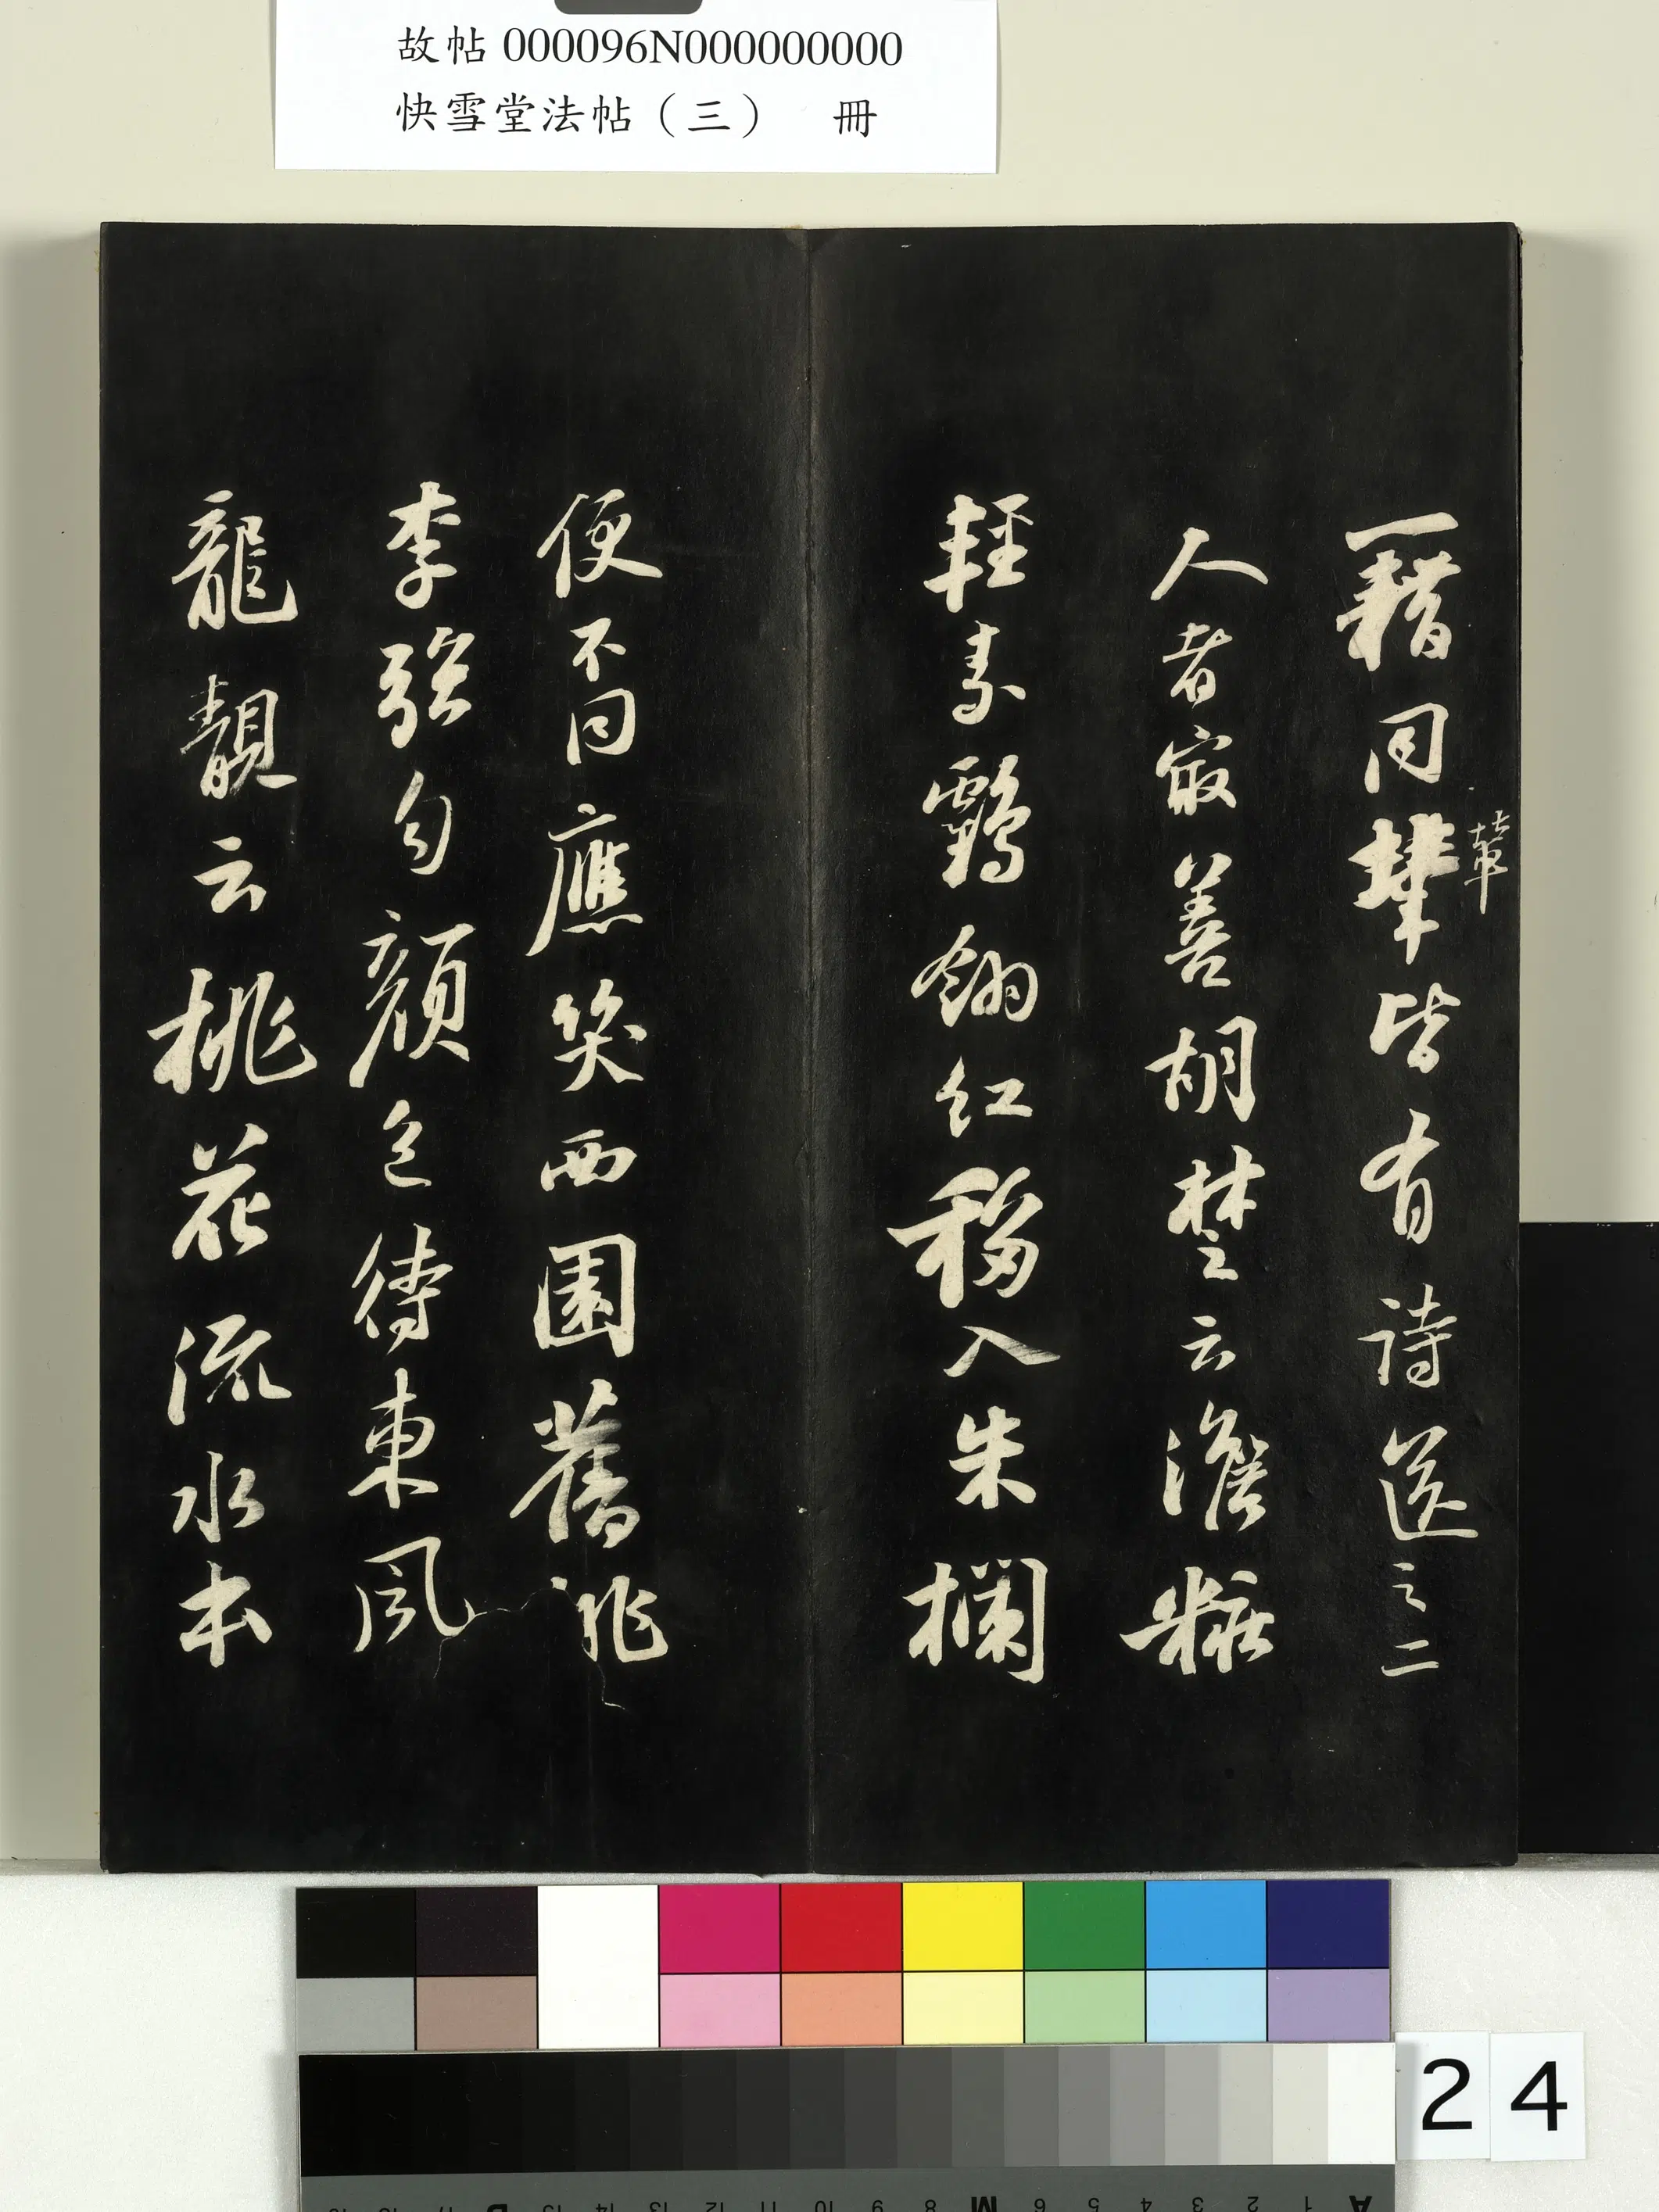 故帖 000096N000000000
快雪堂法帖（三） 冊
一籍同輩皆有詩送之二
輩
人者最善胡楚云澹粧
輕素鶴翎紅移入朱欄
便不同應笑西園舊桃
李強勻顏色待東風
龍靚云桃花流水本
24